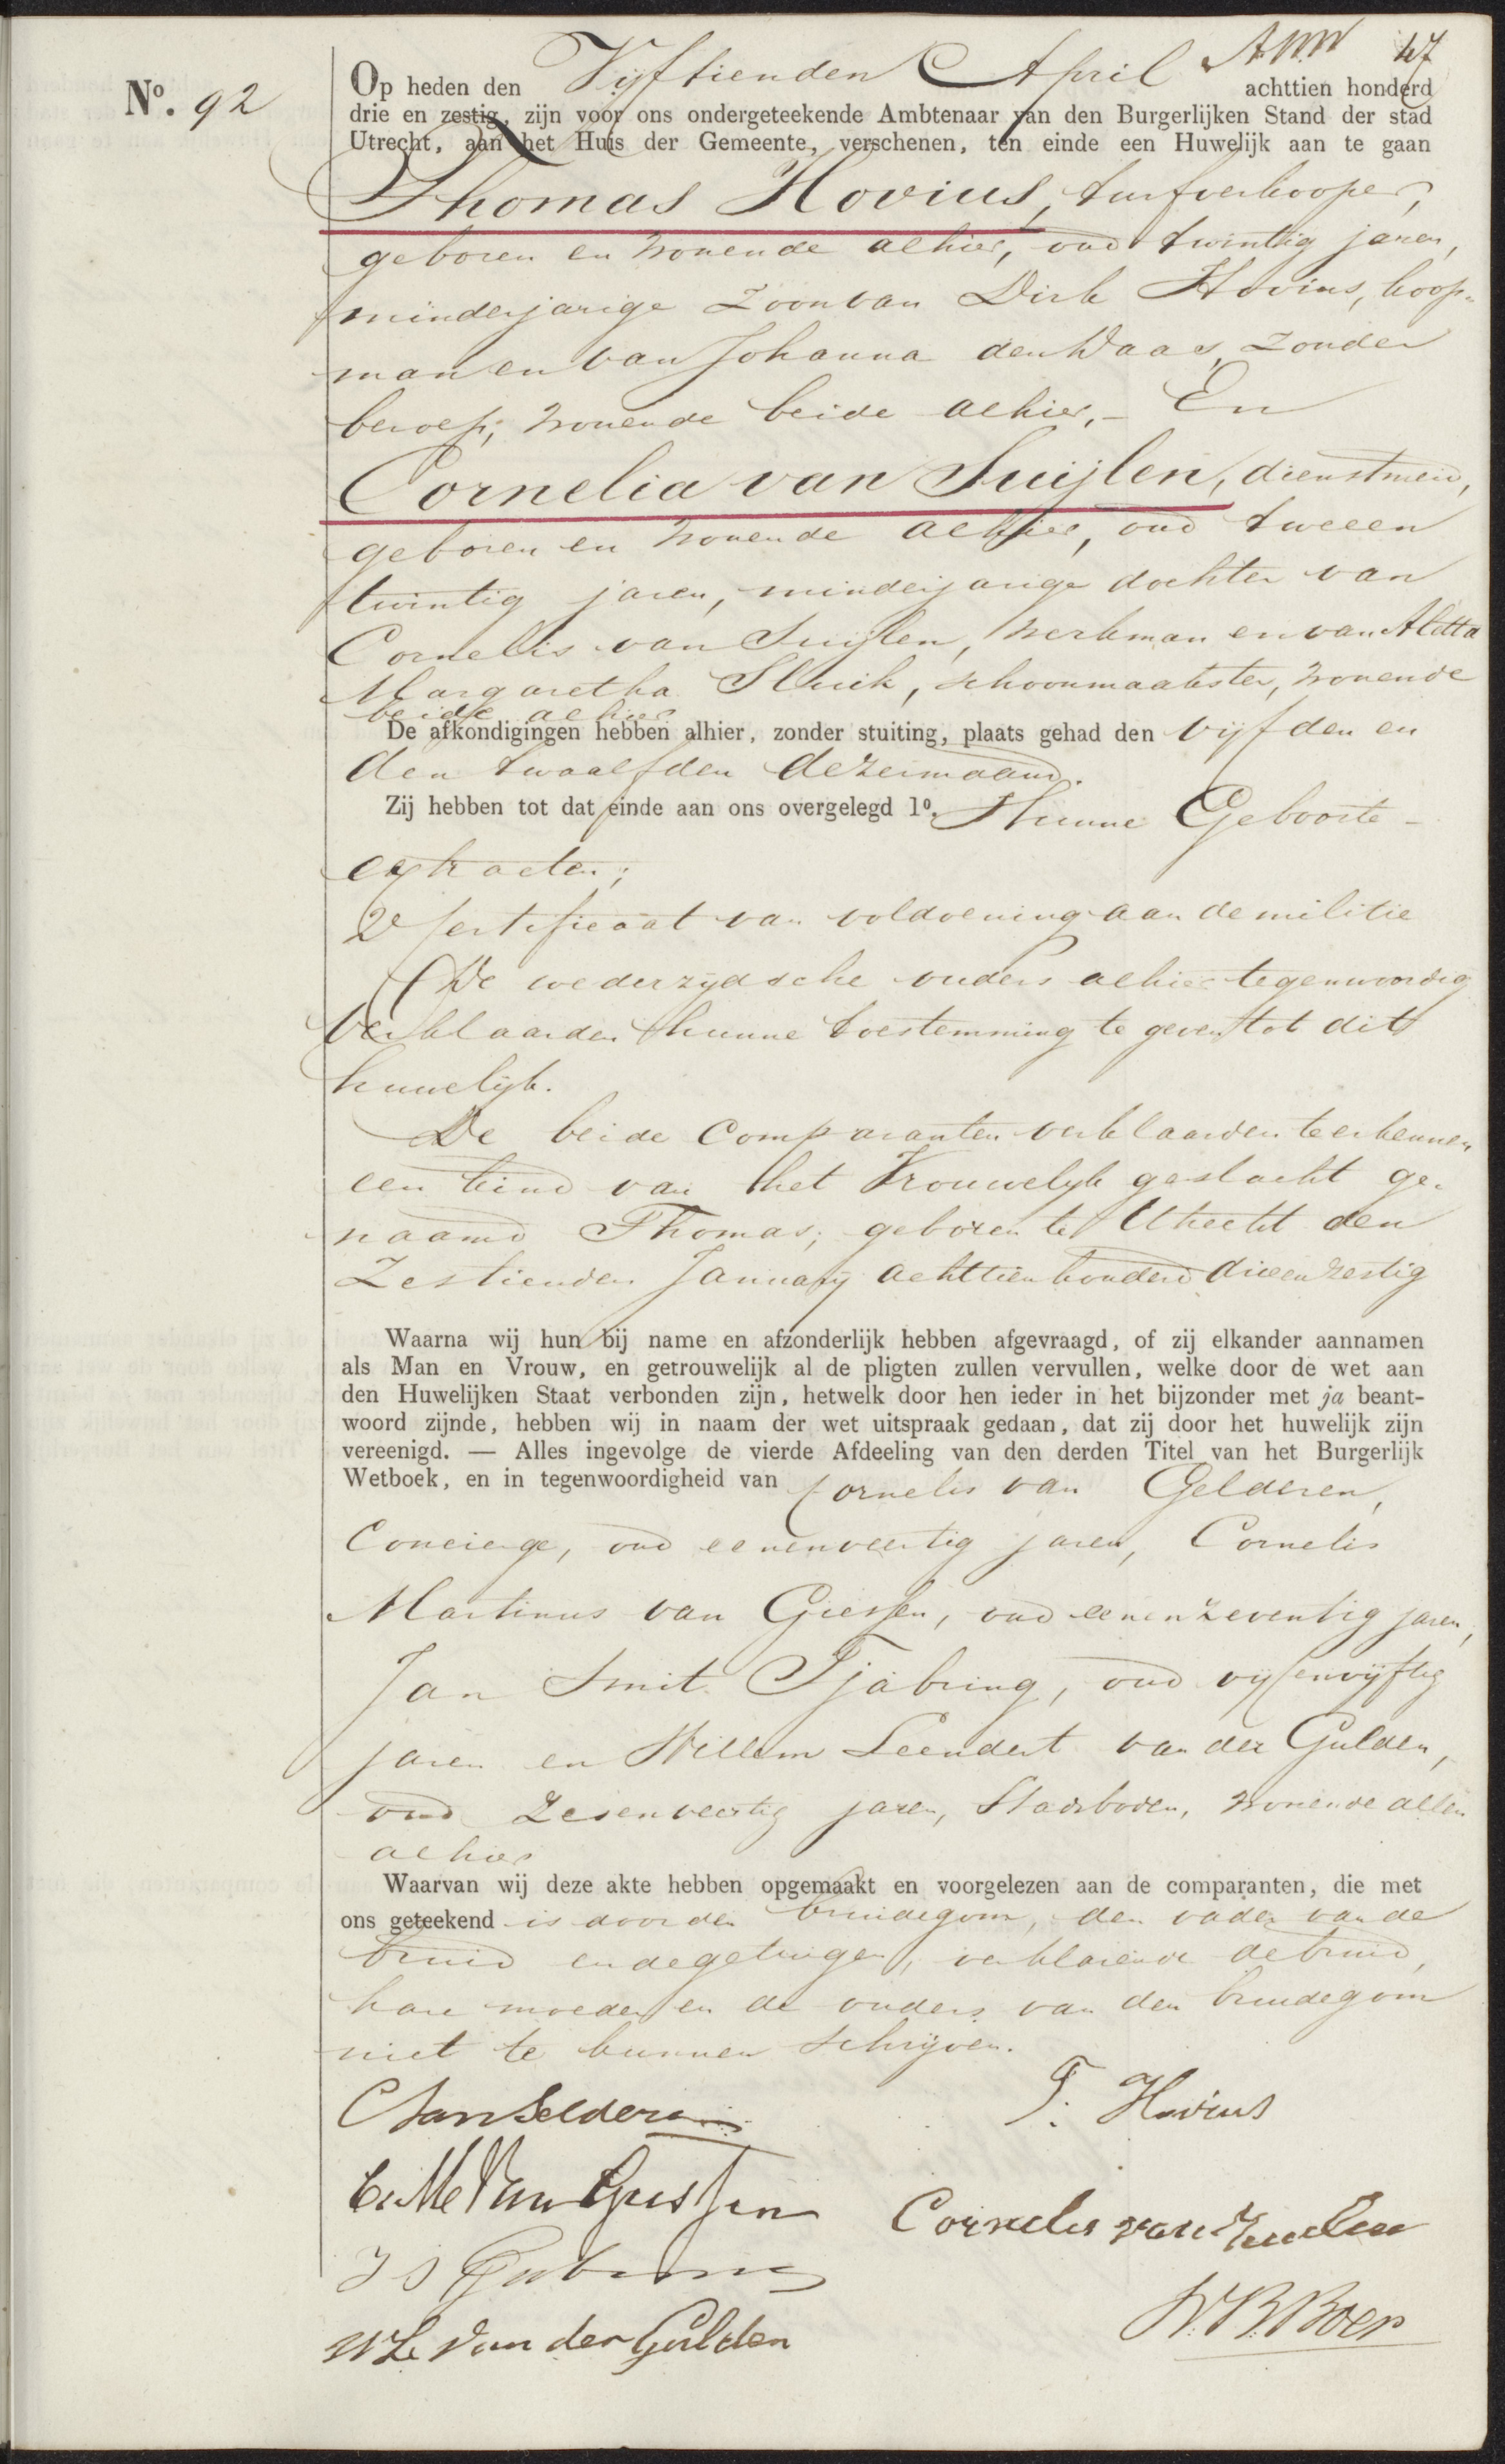 No. 92
47
Op heden den Vijftienden April achttien honderd
drie en zestig, zijn voor ons ondergeteekende Ambtenaar van den Burgerlijken Stand der stad
Utrecht, aan het Huis der Gemeente, verschenen, ten einde een Huwelijk aan te gaan
Thomas Hovius, turfverkooper,
geboren en wonende alhier, oud twintig jaren,
minderjarige zoon van Dirk Hovius, koop-
man en van Johanna den Daas, zonder
beroep; wonende beide alhier,- En
Cornelia van Suijlen, dienstmeid,
geboren en wonende alhier, oud tweeen
twintig jaren, minderjarige dochter van
Cornelis van Suijlen, werkman en van Aletta
Margaretha Sluik, schoonmaakster, wonende
beide alhier
De afkondigingen hebben alhier, zonder stuiting, plaats gehad den vijfden en
den twaalfden dezer maand.
Zij hebben tot dat einde aan ons overgelegd 1o. Hunne Geboorte-
extracten;
2e Certificaat van voldoening aan de militie
De wederzijdsche ouders alhier tegenwoordig
verklaarden hunne toestemming te geven tot dit
huwelijk.
De beide Comparanten verklaarden te erkennen
een kind van het Vrouwelijk geslacht ge-
naamd Thomas; geboren te Utrecht den
Zestienden Januarij achttienhonderd drieenzestig
Waarna wij hun bij name en afzonderlijk hebben afgevraagd, of zij elkander aannamen
als Man en Vrouw, en getrouwelijk al de pligten zullen vervullen, welke door de wet aan
den Huwelijken Staat verbonden zijn, hetwelk door hen ieder in het bijzonder met ja beant-
woord zijnde, hebben wij in naam der wet uitspraak gedaan, dat zij door het huwelijk zijn
vereenigd. — Alles ingevolge de vierde Afdeeling van den derden Titel van het Burgerlijk
Wetboek, en in tegenwoordigheid van Cornelis van Gelderen,
Concierge, oud eenenveertig jaren, Cornelis
Martinus van Giessen, oud eenenzeventig jaren,
Jan Smit Tjabring, oud vijfenvijftig
jaren en Willem Leendert van der Gulden,
oud zesenveertig jaren, Stadsboden, wonende allen
alhier
Waarvan wij deze akte hebben opgemaakt en voorgelezen aan de comparanten, die met
ons geteekend is door den bruidegom, den vader van de
bruid en de getuigen, verklarende de bruid,
hare moeder en de ouders van den bruidegom
niet te kunnen schrijven.
C van Gelderen
T. Hovius
C. M. van Giessen
Cornelis van Zuilen
J S Tjabring
W. B. Boer
W L. van der Gulden